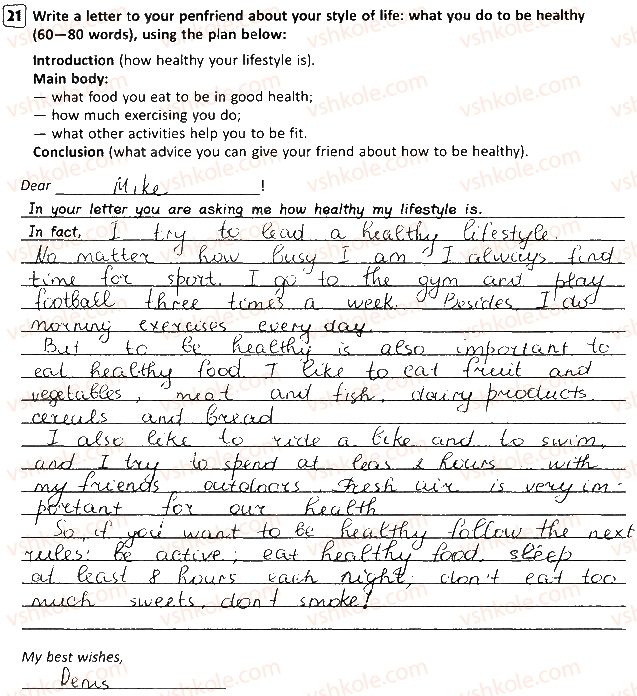 21 Write a letter to your penfriend about your style of life: what you do to be healthy
(60—80 words), using the plan below:
Introduction (how healthy your lifestyle is).
Main body:
— what food you eat to be in good health;
— how much exercising you do;
— what other activities help you to be fit.
Conclusion (what advice you can give your friend about how to be healthy).
Dear Mike!
In your letter you are asking me how healthy my lifestyle is.
In fact, I try to lead a healthy lifestyle.
No matter how busy I am I always find
time for sport. I go to the gym and play
football three times a week. Besides I do
morning exercises every day.
But to be healthy is also important to
eat healthy food. I like to eat fruit and
vegetables, meat and fish, dairy products,
cereals and bread
I also like to ride a bike and to swim,
and I try to spend at leas 2 hours with
my friends outdoors. Fresh air is very im-
portant for our health
So, if you want to be healthy follow the next
rules: be active; eat healthy food, sleep
at least 8 hours each night; don't eat too
much sweets, don't smoke!
My best wishes,
Denis
vshkole.com